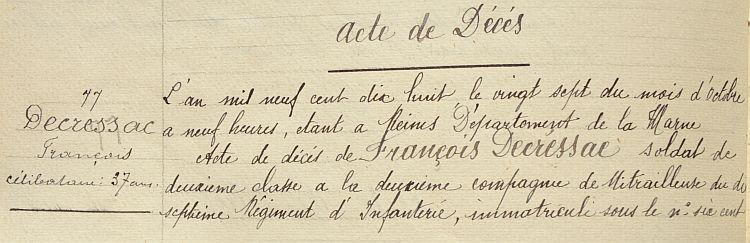 acte de Décés
77
Decressac
François
célibataire 37 ans
L'an mil neuf cent dix huit, le vingt sept du mois d'Octobre
a neuf heures, étant a Reims Département de la Marne
Acte de décés de François Decressac soldat de
deuxieme classe a la deuxieme compagnie de Mitrailleuse du di
septieme Régiment d'Infanterie, immatriculé sous le n° six cent